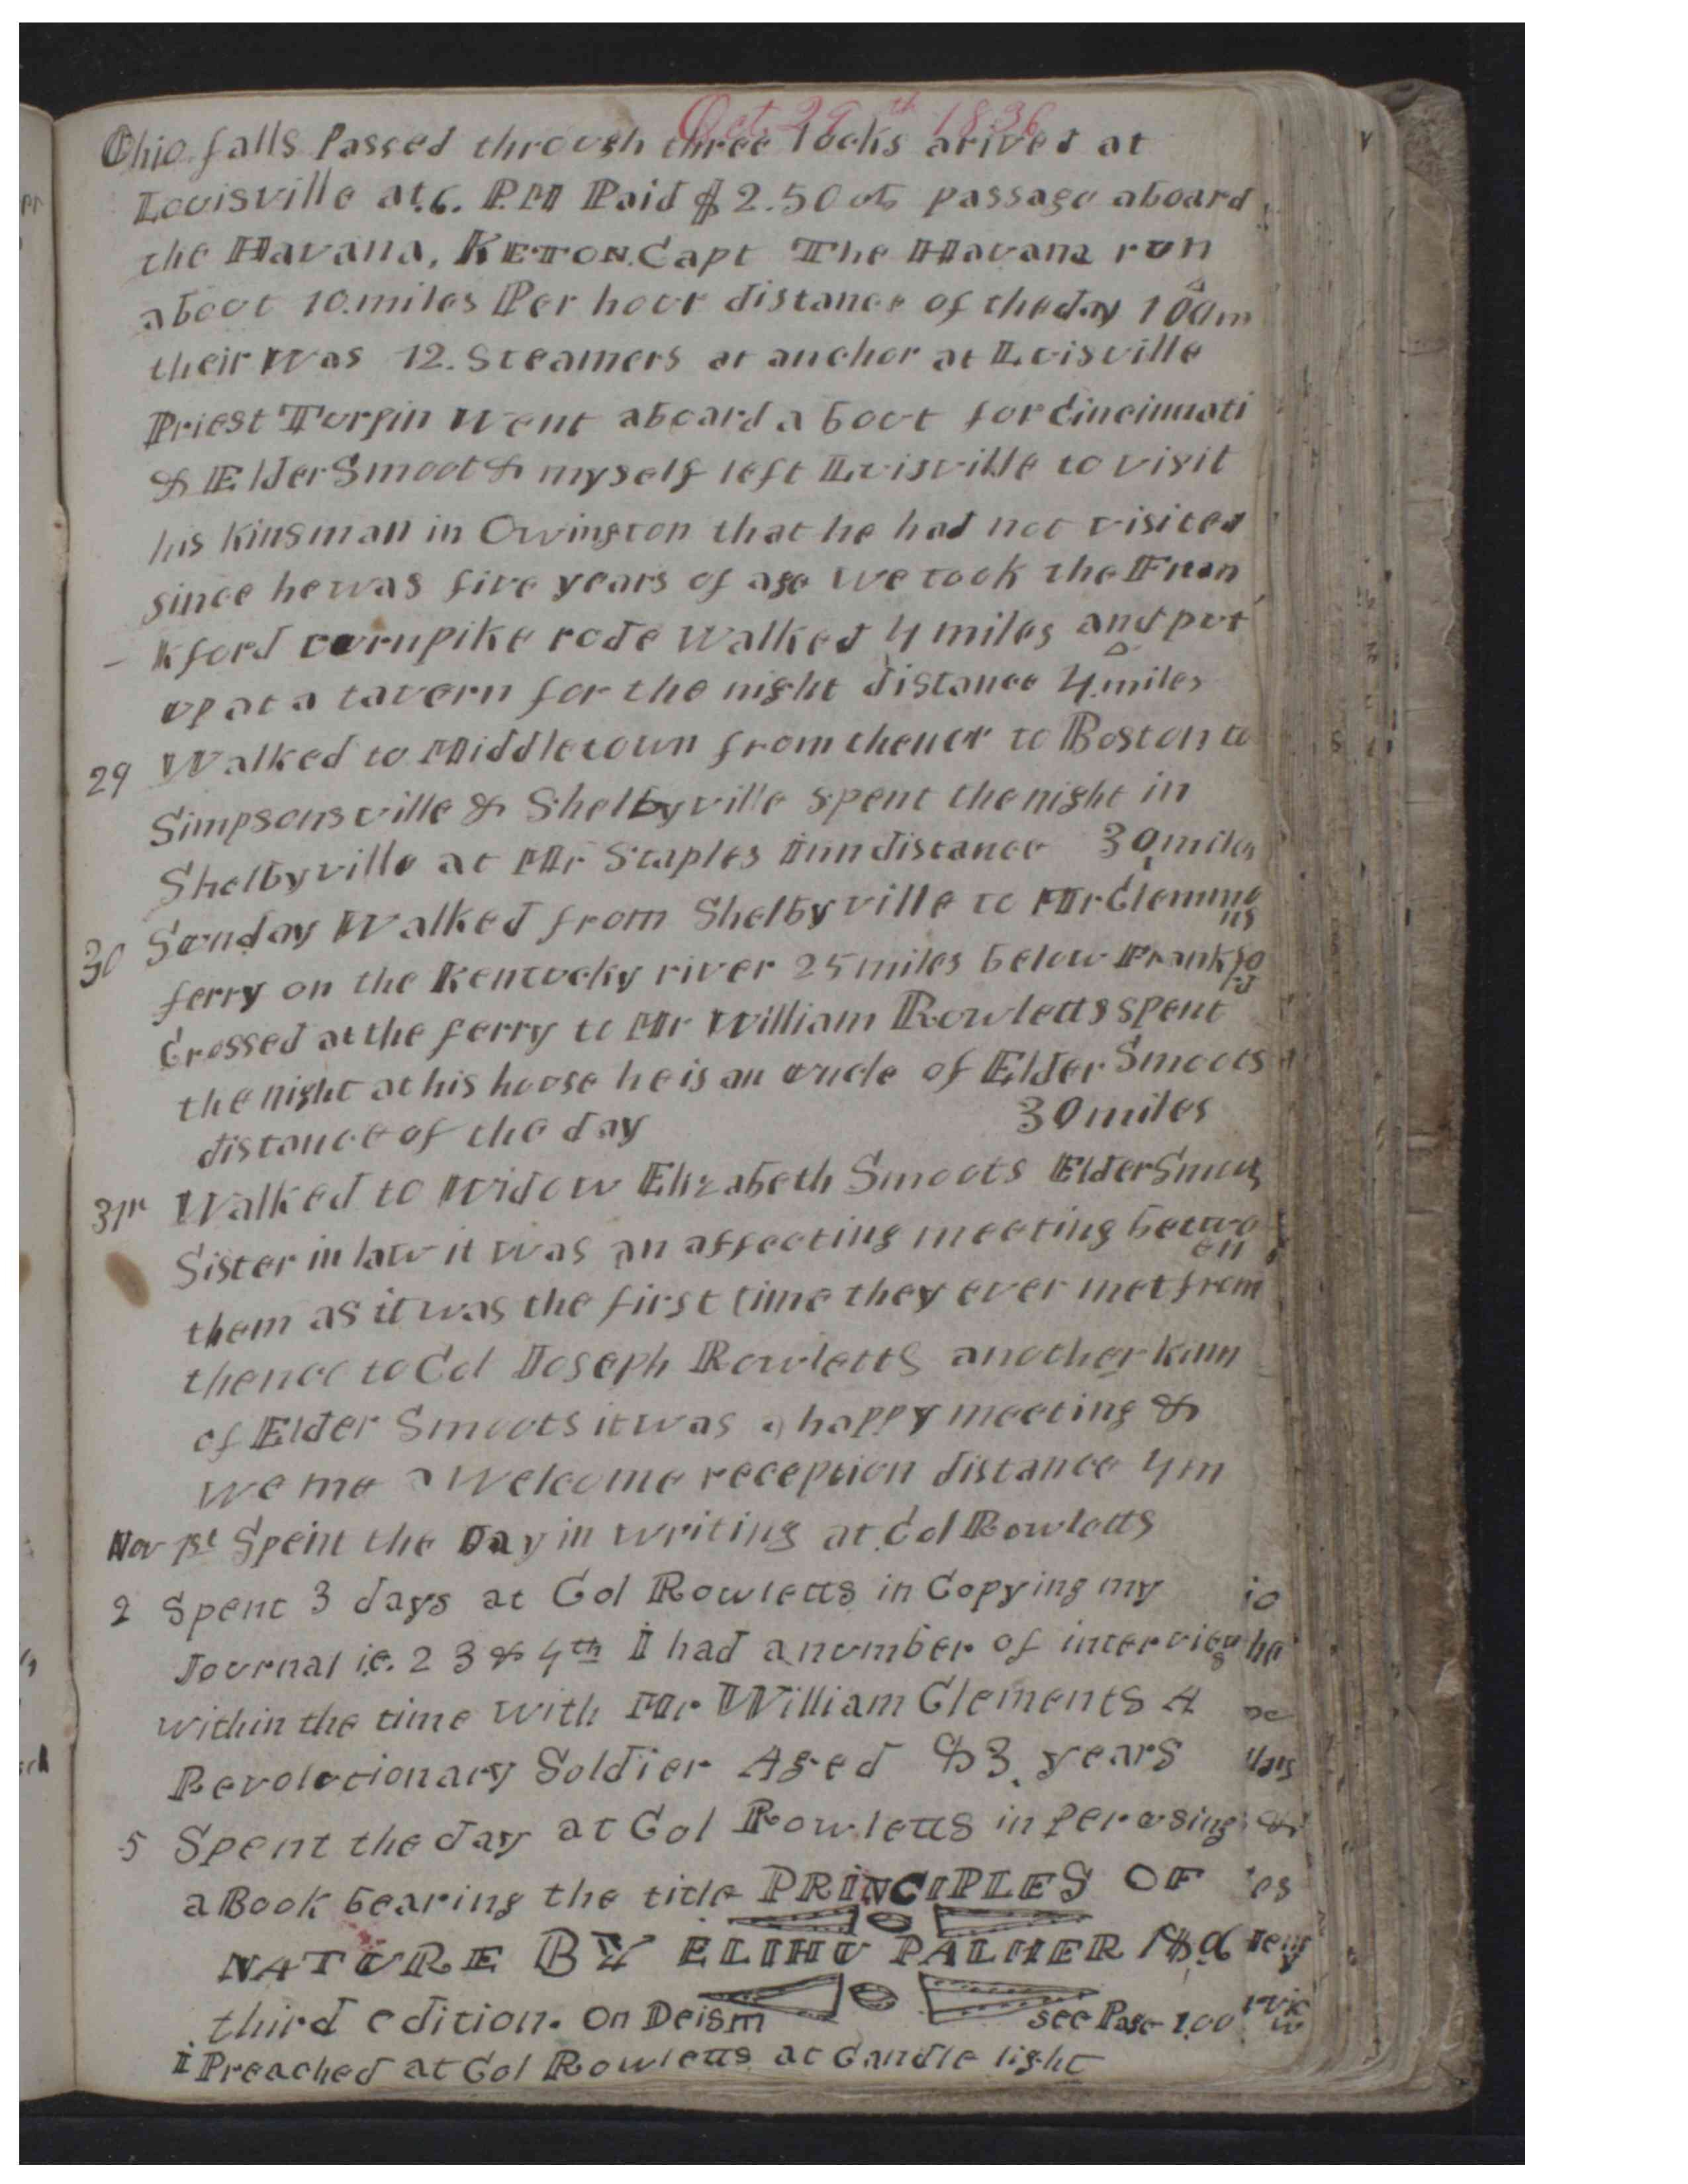 Oct 29th 1836
Ohio falls Passed through three locks arived at
Louisville at.6. PM Paid $2.50 cts passage aboard
the Havana, KETON. Capt The Havana run
about 10. miles Per hour distance of the day 100 m
their was 12. Steamers at anchor at Luisville
Priest Turpin went aboard a boot for Cincinnati
& Elder Smoot & myself left Luisville to visit
his kinsman in Owington that he had not visited
since he was five years of age we took the Fran
- kford turnpike rode walked 4 miles and put
up at a tavern for the night distance 4. miles
29 Walked to Middletown from thence to Boston to
Simpsonsville & Shelbyville Spent the night in
Shelbyville at Mr Staples Inn distance 30 miles
30 Sunday Walked from Shelbyville to Mr Clemme
ns
ferry on the Kentucky river 25 miles below Frankfo
rd
Crossed at the ferry to Mr William Rowletts spent
the night at his house he is an uncle of Elder Smoots
distance of the day 30 miles
31st Walked to Widow Elizabeth Smoots Elder Smoots
Sister in law it was an affecting meeting betwe
en
them as it was the first time they ever met from
thence to Col Joseph Rowletts another kinn
of Elder Smoots it was a happy meeting &
we me a Welcome reception distance 4 m
Nov 1st Spent the Day in writing at Col Rowletts
2 Spent 3 days at Col Rowletts in Copying my
Journal i.e. 2 3 & 4th I had a number of interview
s
within the time with Mr William Clements A
Revolutionary Soldier Aged 83 years
5 Spent the day at Col Rowletts in perusing
a Book bearing the title PRINCIPLES OF
NATURE BY ELIHU PALMER 1806
third edition. On Deism see Page 100
I Preached at Col Rowletts at Candle light